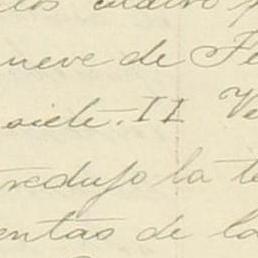 los cuatro p
nueve de Fe
siete. II Ve
redujo la te
entas de la